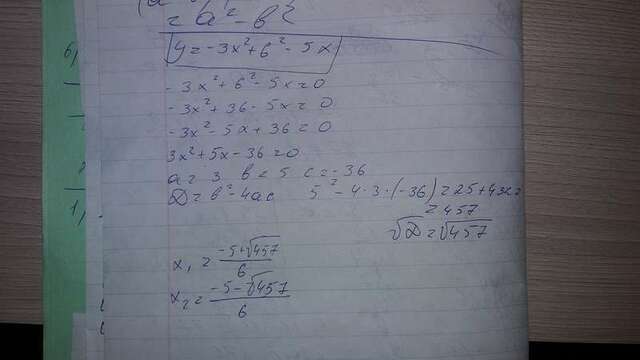 = a² - b²
y = -3x² + 6² - 5x
-3x² + 6² - 5x = 0
-3x² + 36 - 5x = 0
-3x² - 5x + 36 = 0
3x² + 5x - 36 = 0
a = 3 b = 5 c = -36
D = b² - 4ac 5² - 4·3·(-36) = 25 + 432 =
= 457
√D = √457
x₁ = (-5+√457)/6
x₂ = (-5-√457)/6